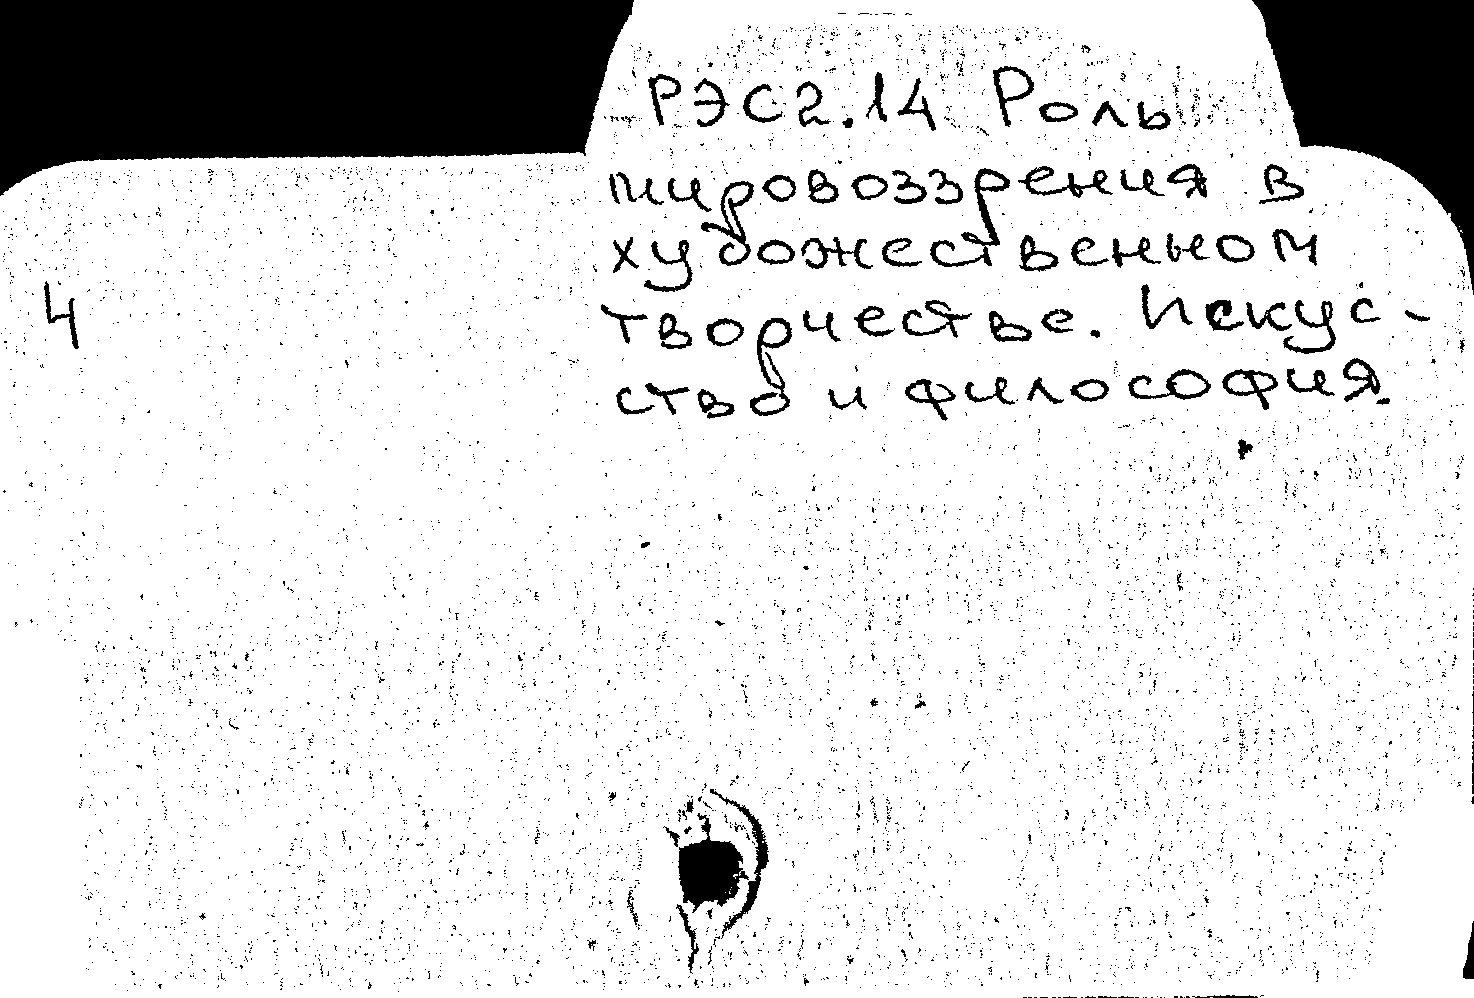 РЭС2.14 Роль
мировоззрения в
художественном
4
творчестве. Искус-
ство и философия.